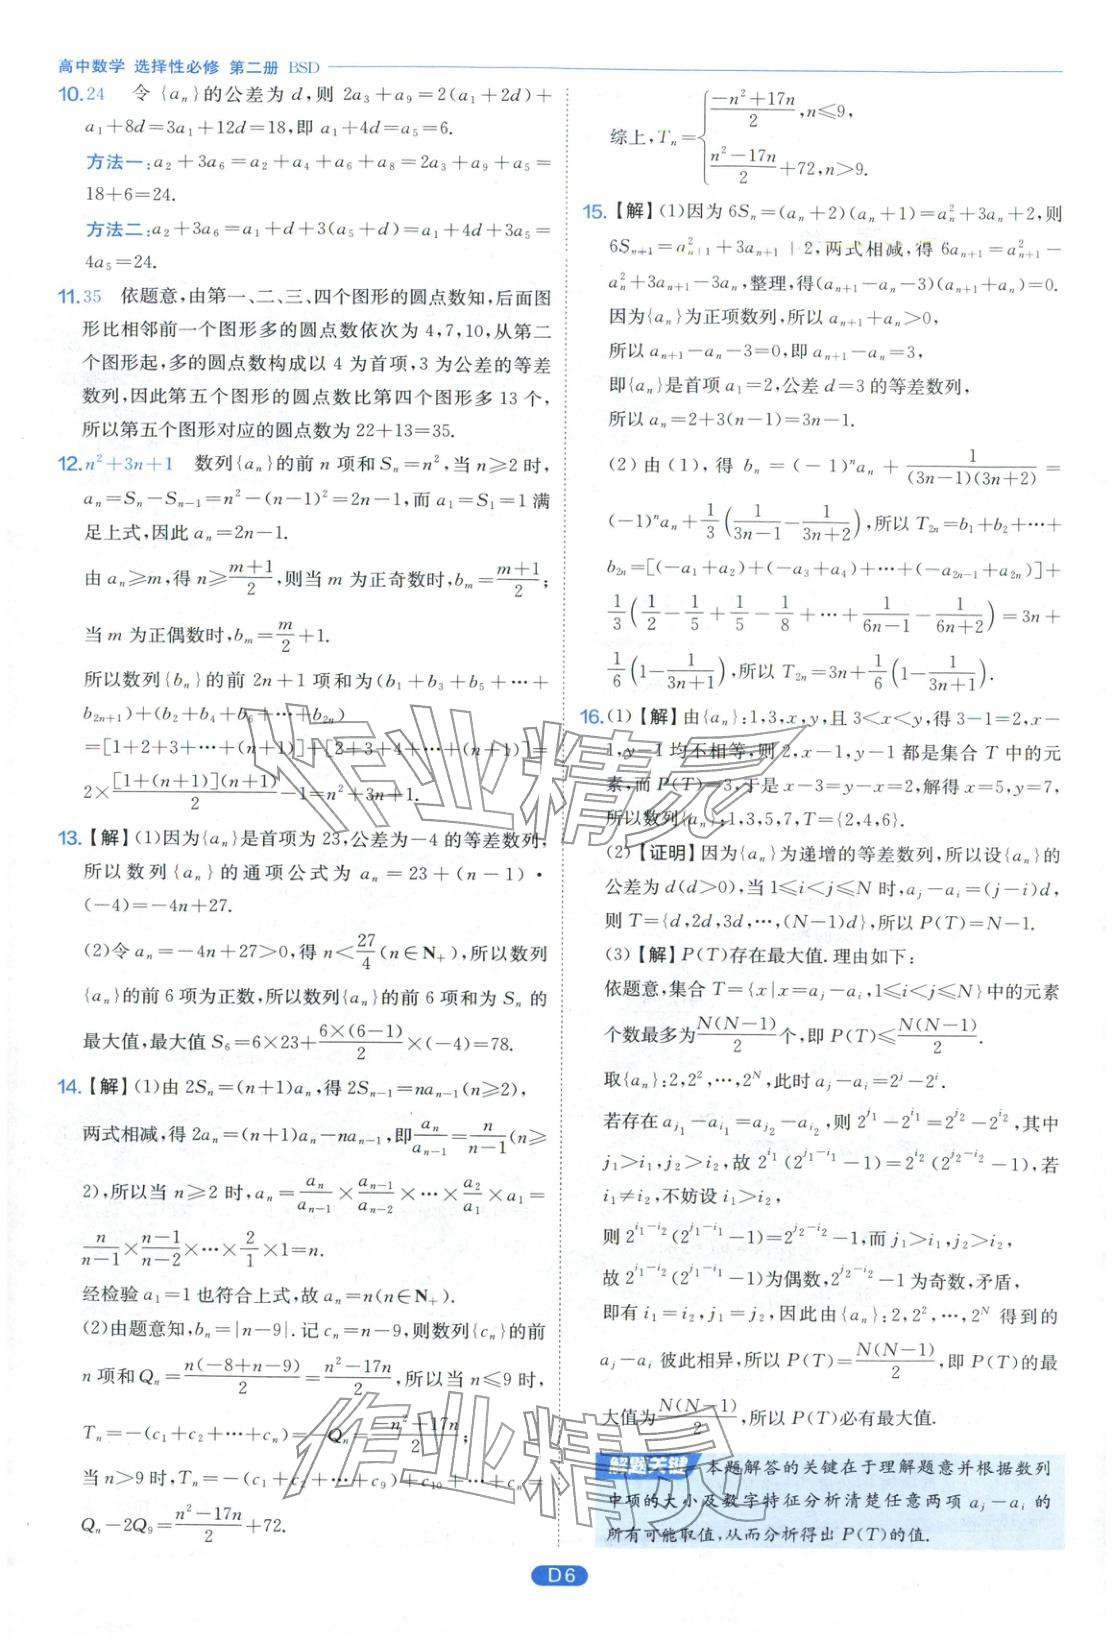 高中数学 选择性必修 第二册 BSD
10. 24 令{aₙ}的公差为 d,则 2a₃+a₉=2(a₁+2d)+
a₁+8d=3a₁+12d=18,即 a₁+4d=a₅=6.
方法一:a₂+3a₆=a₂+a₄+a₆+a₈=2a₃+a₉+a₅=
18+6=24.
方法二:a₂+3a₆=a₁+d+3(a₅+d)=a₁+4d+3a₅=
4a₅=24.
11. 35 依题意,由第一、二、三、四个图形的圆点数知,后面图
形比相邻前一个图形多的圆点数依次为 4,7,10,从第二
个图形起,多的圆点数构成以 4 为首项,3 为公差的等差
数列,因此第五个图形的圆点数比第四个图形多 13 个,
所以第五个图形对应的圆点数为 22+13=35.
12. n²+3n+1 数列{aₙ}的前 n 项和 Sₙ=n²,当 n≥2 时,
aₙ=Sₙ-Sₙ₋₁=n²-(n-1)²=2n-1,而 a₁=S₁=1 满
足上式,因此 aₙ=2n-1.
由 aₙ≥m,得 n≥(m+1)/2,则当 m 为正奇数时,bₘ=(m+1)/2;
当 m 为正偶数时,bₘ=m/2+1.
所以数列{bₙ}的前 2n+1 项和为(b₁+b₃+b₅+…+
b₂ₙ₊₁)+(b₂+b₄+b₆+…+b₂ₙ)
=[1+2+3+…+(n+1)]+[2+3+4+…+(n+1)]=
2×[1+(n+1)](n+1)/2-1=n²+3n+1.
13.【解】(1)因为{aₙ}是首项为 23,公差为-4 的等差数列,
所以数列{aₙ}的通项公式为 aₙ=23+(n-1)·
(-4)=-4n+27.
(2)令 aₙ=-4n+27>0,得 n<27/4(n∈N₊),所以数列
{aₙ}的前 6 项为正数,所以数列{aₙ}的前 6 项和为 Sₙ 的
最大值,最大值 S₆=6×23+6×(6-1)/2×(-4)=78.
14.【解】(1)由 2Sₙ=(n+1)aₙ,得 2Sₙ₋₁=naₙ₋₁(n≥2),
两式相减,得 2aₙ=(n+1)aₙ-naₙ₋₁,即aₙ/aₙ₋₁=n/(n-1)(n≥
2),所以当 n≥2 时,aₙ=aₙ/aₙ₋₁×aₙ₋₁/aₙ₋₂×…×a₂/a₁×a₁=
n/(n-1)×(n-1)/(n-2)×…×2/1×1=n.
经检验 a₁=1 也符合上式,故 aₙ=n(n∈N₊).
(2)由题意知,bₙ=|n-9|.记 cₙ=n-9,则数列{cₙ}的前
n 项和 Qₙ=n(-8+n-9)/2=(n²-17n)/2,所以当 n≤9 时,
Tₙ=-(c₁+c₂+…+cₙ)=-Qₙ=(-n²+17n)/2;
当 n>9 时,Tₙ=-(c₁+c₂+…+c₉)+c₁₀+…+cₙ=
Qₙ-2Q₉=(n²-17n)/2+72.
综上,Tₙ={(-n²+17n)/2,n≤9,
(n²-17n)/2+72,n>9.
15.【解】(1)因为 6Sₙ=(aₙ+2)(aₙ+1)=aₙ²+3aₙ+2,则
6Sₙ₊₁=aₙ₊₁²+3aₙ₊₁+2,两式相减,得 6aₙ₊₁=aₙ₊₁²-
aₙ²+3aₙ₊₁-3aₙ,整理,得(aₙ₊₁-aₙ-3)(aₙ₊₁+aₙ)=0.
因为{aₙ}为正项数列,所以 aₙ₊₁+aₙ>0,
所以 aₙ₊₁-aₙ-3=0,即 aₙ₊₁-aₙ=3,
即{aₙ}是首项 a₁=2,公差 d=3 的等差数列,
所以 aₙ=2+3(n-1)=3n-1.
(2)由(1),得 bₙ=(-1)ⁿaₙ+1/((3n-1)(3n+2))=
(-1)ⁿaₙ+1/3(1/(3n-1)-1/(3n+2)),所以 T₂ₙ=b₁+b₂+…+
b₂ₙ=[(-a₁+a₂)+(-a₃+a₄)+…+(-a₂ₙ₋₁+a₂ₙ)]+
1/3(1/2-1/5+1/5-1/8+…+1/(6n-1)-1/(6n+2))=3n+
1/6(1-1/(3n+1)),所以 T₂ₙ=3n+1/6(1-1/(3n+1)).
16.(1)【解】由{aₙ}:1,3,x,y,且 3<x<y,得 3-1=2,x-
1,y-1 均不相等,则 2,x-1,y-1 都是集合 T 中的元
素,而 P(T)=3,于是 x-3=y-x=2,解得x=5,y=7,
所以数列{aₙ}:1,3,5,7,T={2,4,6}.
(2)【证明】因为{aₙ}为递增的等差数列,所以设{aₙ}的
公差为 d(d>0),当 1≤i<j≤N 时,aⱼ-aᵢ=(j-i)d,
则 T={d,2d,3d,…,(N-1)d},所以 P(T)=N-1.
(3)【解】P(T)存在最大值.理由如下:
依题意,集合 T={x|x=aⱼ-aᵢ,1≤i<j≤N}中的元素
个数最多为N(N-1)/2个,即 P(T)≤N(N-1)/2.
取{aₙ}:2,2²,…,2ᴺ,此时 aⱼ-aᵢ=2ʲ-2ⁱ.
若存在 a_{j₁}-a_{i₁}=a_{j₂}-a_{i₂},则 2^{j₁}-2^{i₁}=2^{j₂}-2^{i₂},其中
j₁>i₁,j₂>i₂,故 2^{i₁}(2^{j₁-i₁}-1)=2^{i₂}(2^{j₂-i₂}-1),若
i₁≠i₂,不妨设 i₁>i₂,
则 2^{i₁-i₂}(2^{j₁-i₁}-1)=2^{j₂-i₂}-1,而 j₁>i₁,j₂>i₂,
故 2^{i₁-i₂}(2^{j₁-i₁}-1)为偶数,2^{j₂-i₂}-1 为奇数,矛盾,
即有 i₁=i₂,j₁=j₂,因此由{aₙ}:2,2²,…,2ᴺ 得到的
aⱼ-aᵢ 彼此相异,所以 P(T)=N(N-1)/2,即 P(T)的最
大值为N(N-1)/2,所以 P(T)必有最大值.
解题关键 本题解答的关键在于理解题意并根据数列
中项的大小及数字特征分析清楚任意两项 aⱼ-aᵢ 的
所有可能取值,从而分析得出 P(T)的值.
D6
作业精灵
作业精灵